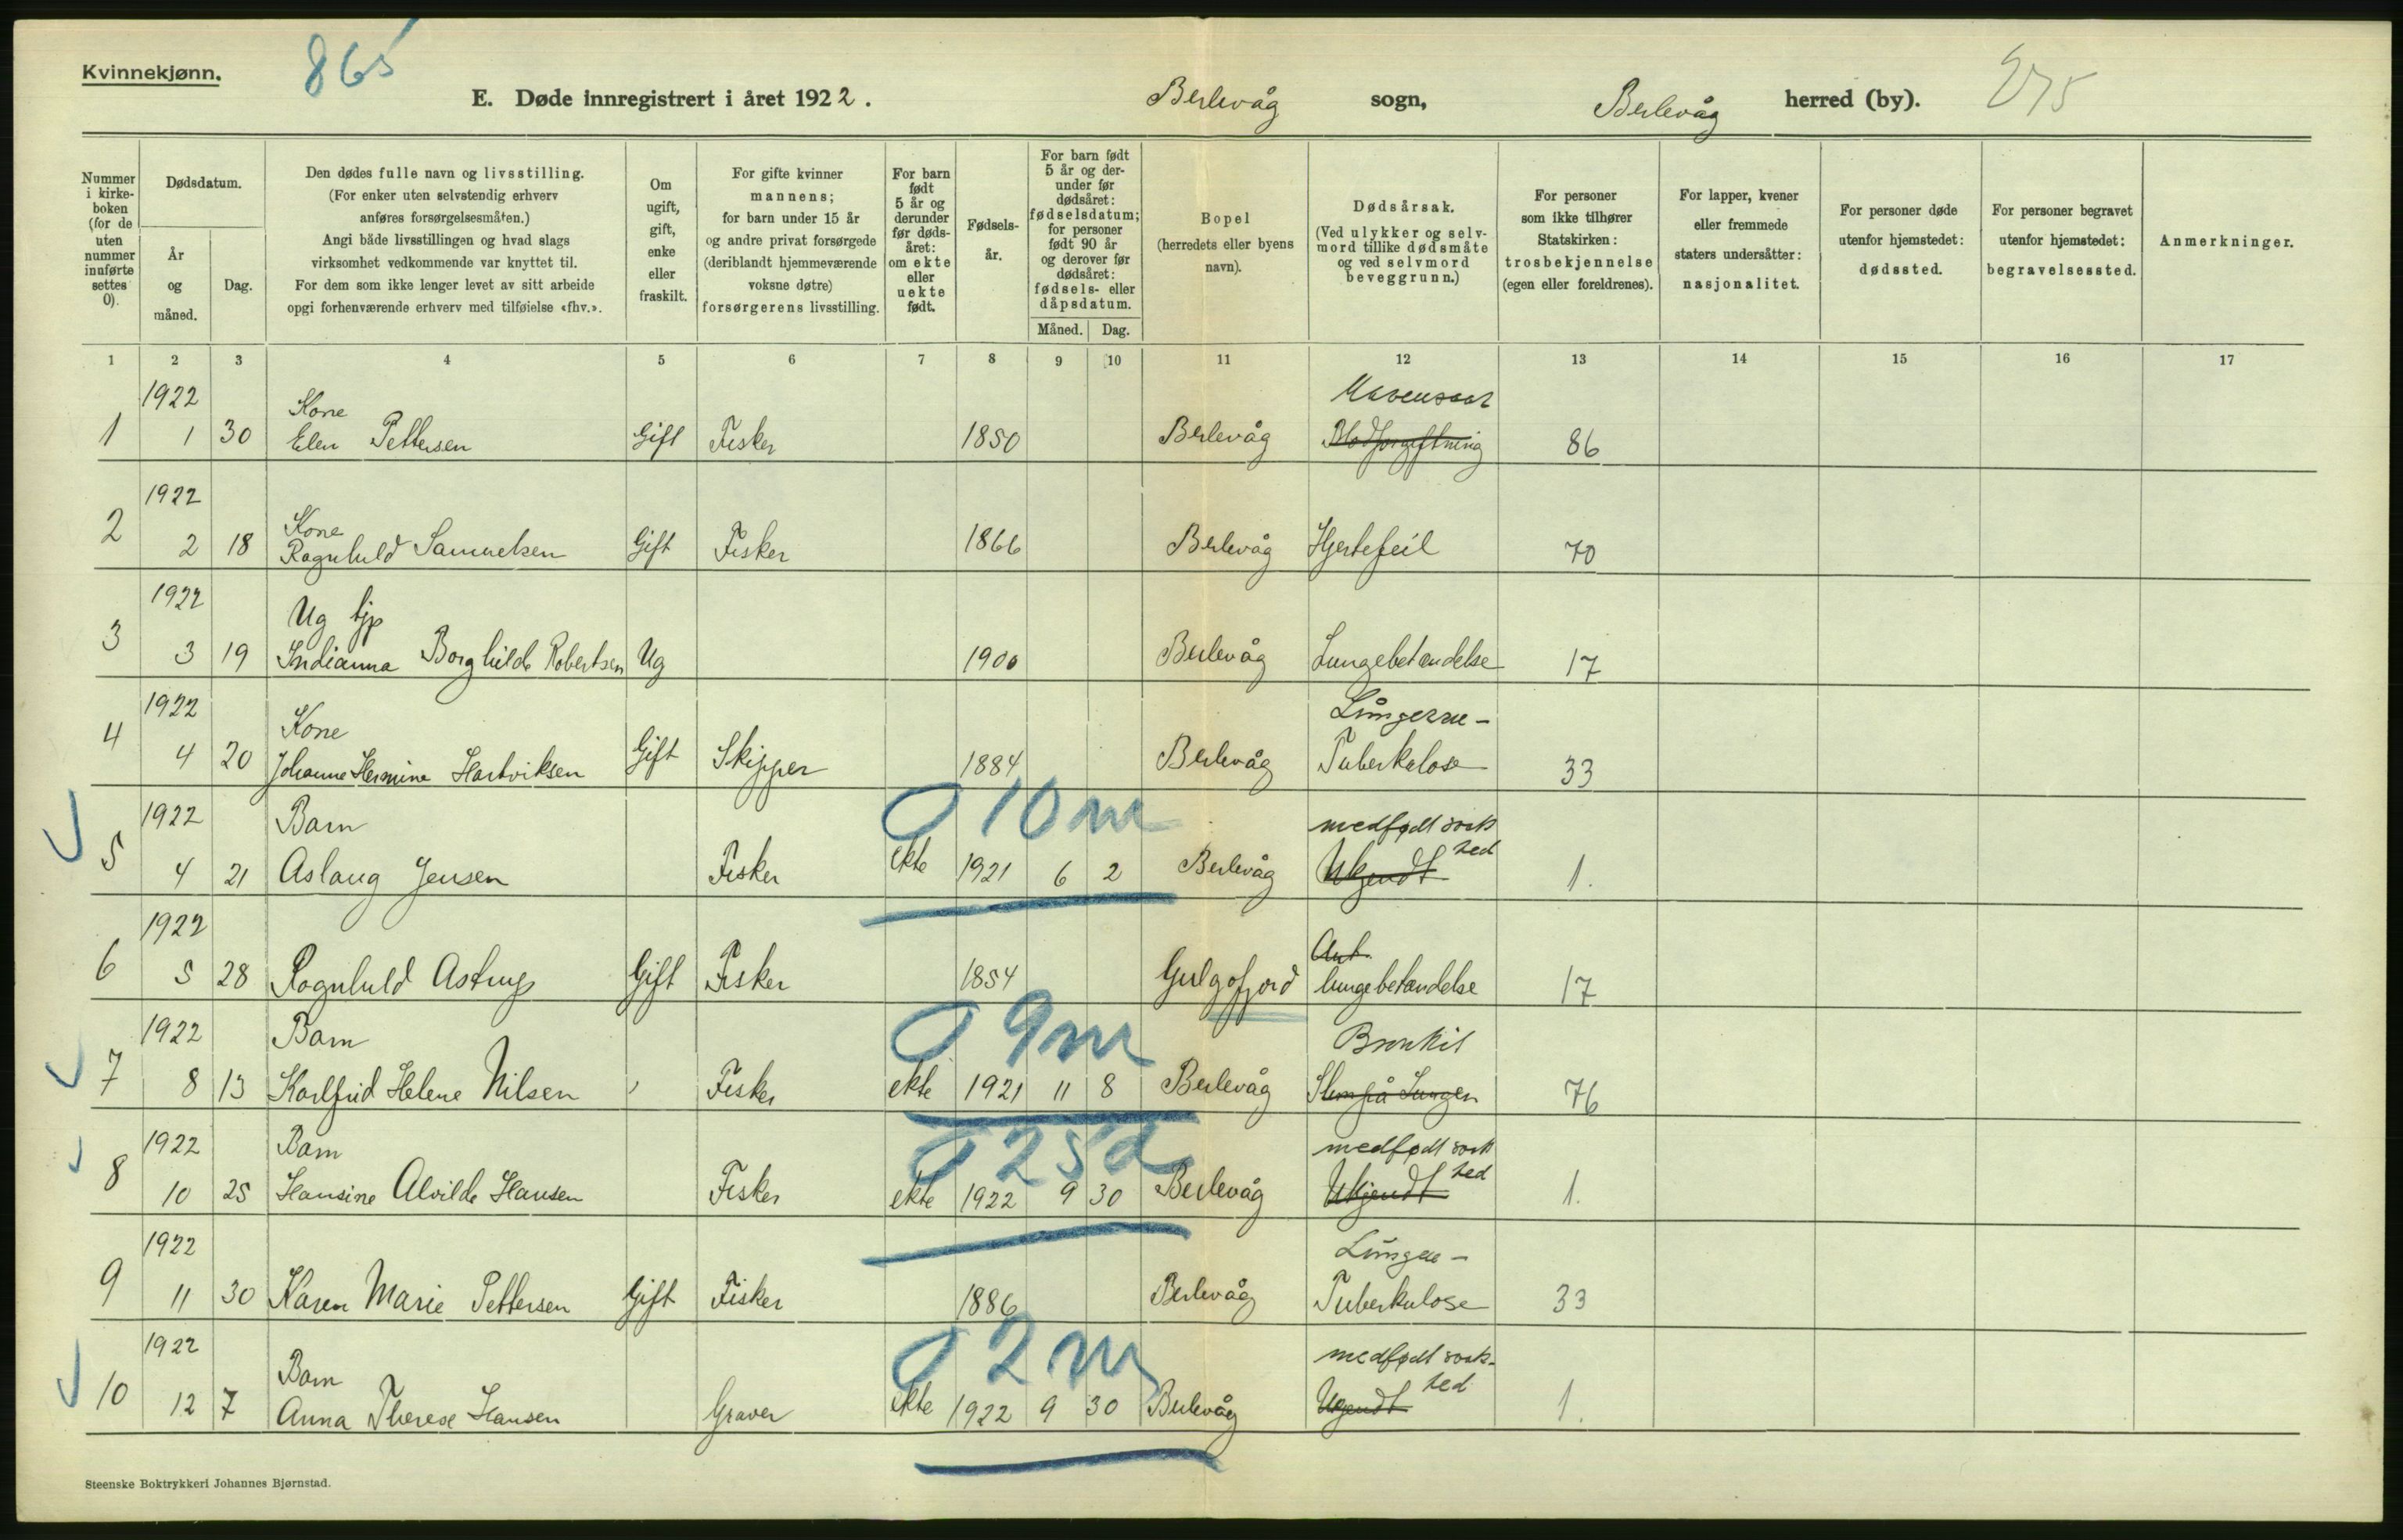 Kvinnekjønn.
865
E. Døde innregistrert i året 1922. Berlevåg sogn, Berlevåg herred (by). 275
Nummer i kirkeboken (for de uten nummer innførte settes 0).
Dødsdatum.
År og måned.
Dag.
Den dødes fulle navn og livsstilling.
(For enker uten selvstendig erhverv
anføres forsørgelsesmåten.)
Angi både livsstillingen og hvad slags
virksomhet vedkommende var knyttet til.
For dem som ikke lenger levet av sitt arbeide
opgi forhenværende erhverv med tilføielse «fhv.».
Om ugift, gift, enke eller fraskilt.
For gifte kvinner
mannens;
for barn under 15 år
og andre privat forsørgede
(deriblandt hjemmeværende
voksne døtre)
forsørgerens livsstilling.
For barn født 5 år og derunder før dødsåret: om ekte eller uekte født.
Fødselsår.
For barn født 5 år og derunder før dødsåret: fødselsdatum; for personer født 90 år og derover før dødsåret: fødsels- eller dåpsdatum.
Måned. Dag.
Bopel
(herredets eller byens
navn).
Dødsårsak.
(Ved ulykker og selvmord tillike dødsmåte
og ved selvmord
beveggrunn.)
For personer
som ikke tilhører
Statskirken:
trosbekjennelse
(egen eller foreldrenes).
For lapper, kvener
eller fremmede
staters undersåtter:
nasjonalitet.
For personer døde
utenfor hjemstedet:
dødssted.
For personer begravet
utenfor hjemstedet:
begravelsessted.
Anmerkninger.
1 2 3 4 5 6 7 8 9 10 11 12 13 14 15 16 17
1922 Kone Mavensaar
1 1 30 Elen Pettersen Gift Fisker 1850 Berlevåg Blodforgiftning 86
1922 Kone
2 2 18 Ragnhild Samuelsen Gift Fisker 1866 Berlevåg Hjertefeil 70
1922 Ug tjp
3 3 19 Indianna Borghilde Robertsen Ug 1900 Berlevåg Lungebetændelse 17
1922 Kone
4 4 20 Johanne Hermine Hartviksen Gift Skipper 1884 Berlevåg Tuberkulose 33
0 10 m
1922 Barn medfødt svakhed
5 4 21 Aslaug Jensen Fisker ekte 1921 6 2 Berlevåg Ukjendt 1.
1922
6 5 28 Ragnhild Astrup Gift Fisker 1854 Gulgofjord lungebetændelse 17
0 9 m
1922 Barn Bronkit
7 8 13 Karlfrid Helene Nilsen Fisker ekte 1921 11 8 Berlevåg Slem på Lungen 76
0 25 d
1922 Barn medfødt svakhed
8 10 25 Hansine Alvilde Hansen Fisker ekte 1922 9 30 Berlevåg Ukjendt 1.
1922 Lunge-
9 11 30 Karen Marie Pettersen Gift Fisker 1886 Berlevåg Tuberkulose 33
0 2 m
1922 Barn medfødt svakhed
10 12 7 Anna Therese Hansen Graver ekte 1922 9 30 Berlevåg Ukjendt 1.
Steenske Boktrykkeri Johannes Bjørnstad.